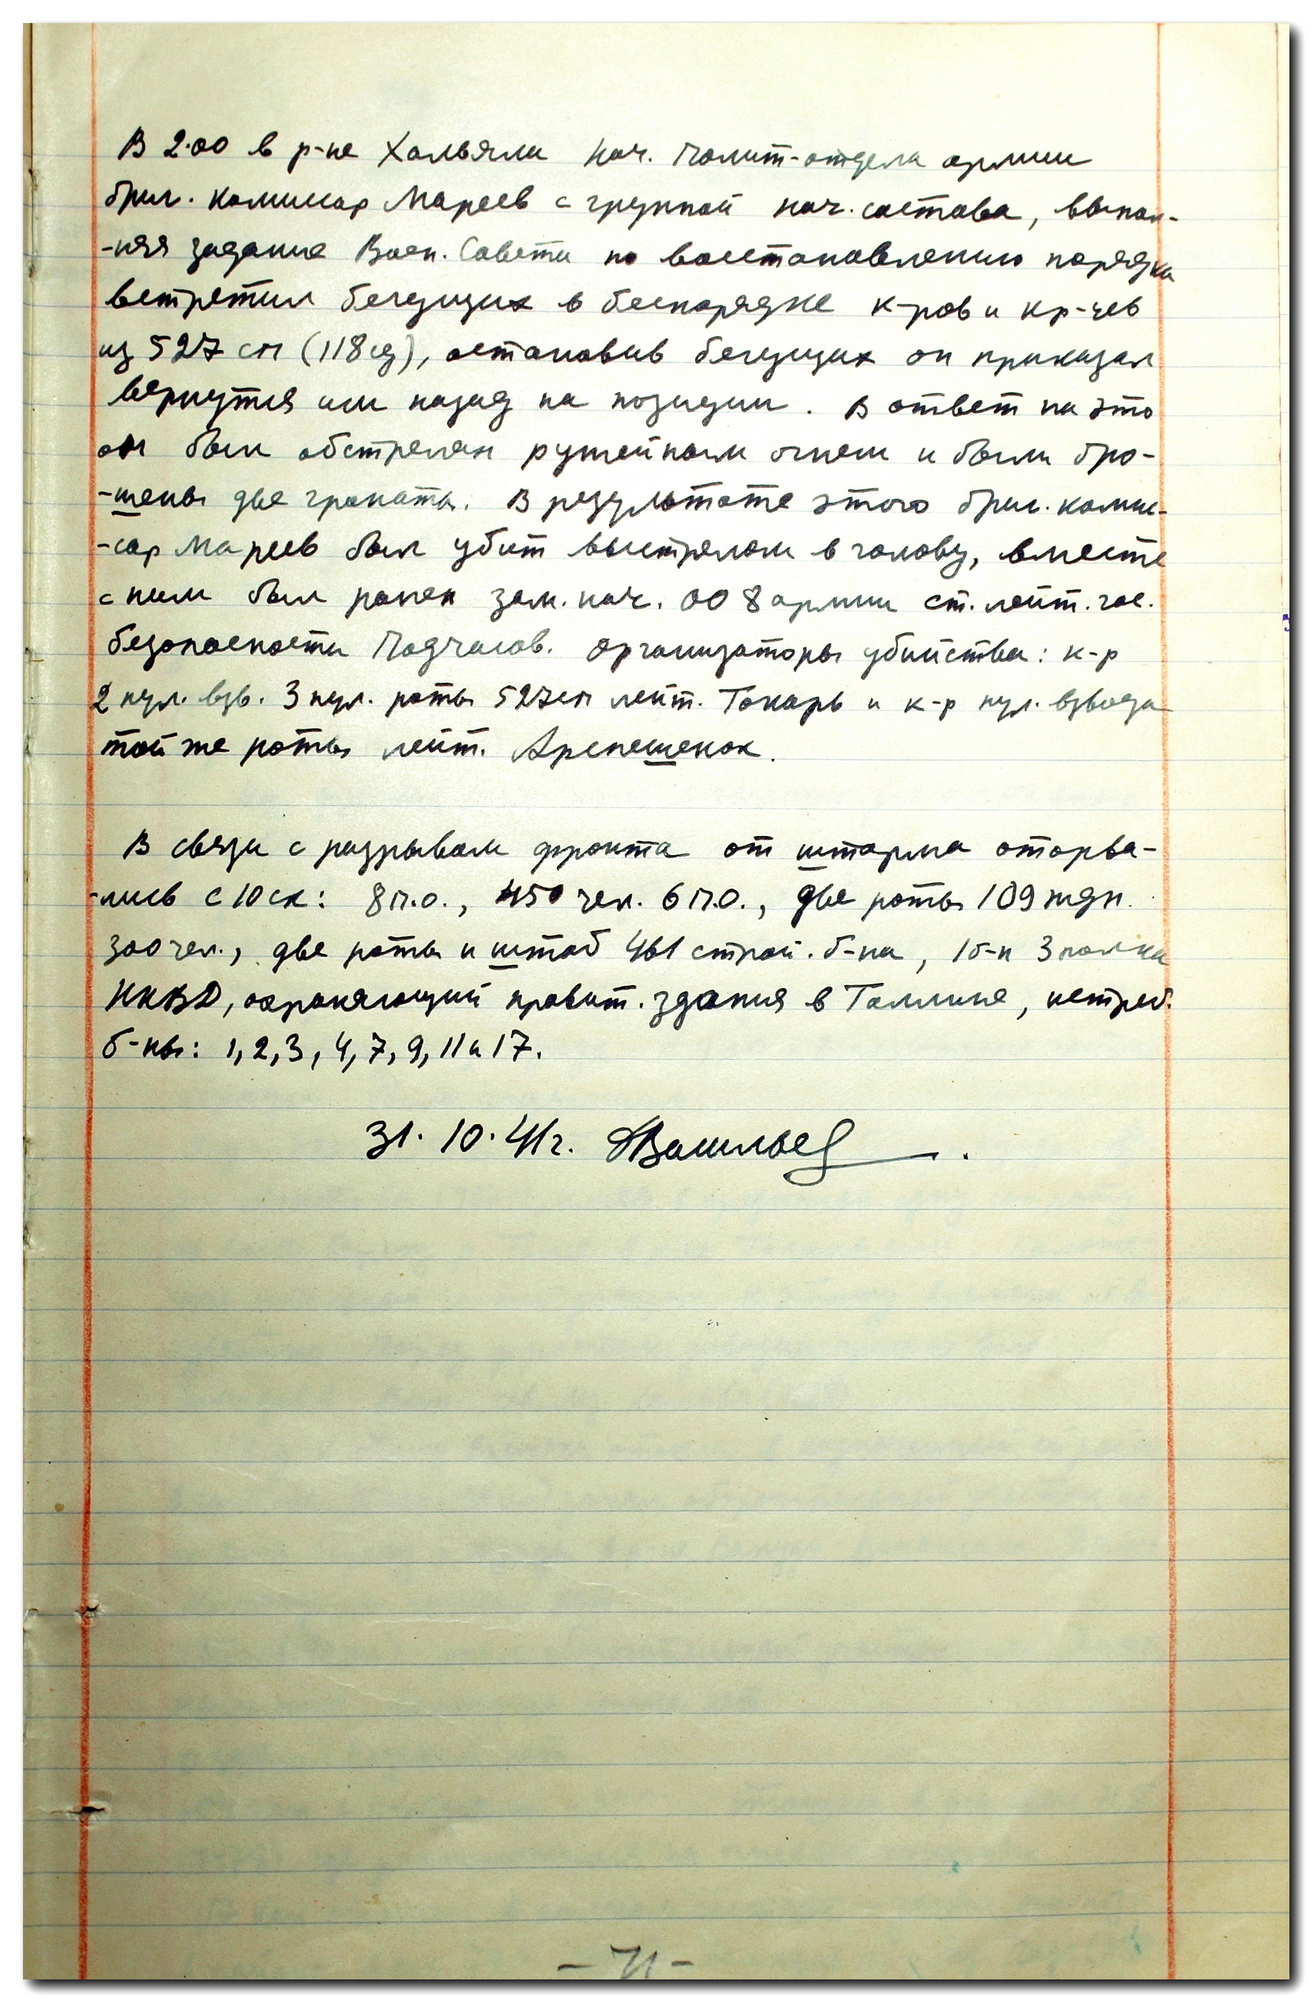 В 2.00 в р-не Хальяли нач. Полит-отдела армии
бриг. комиссар Мареев с группой нач. состава, выпол-
-няя задание Воен. Совета по восстановлению порядка
встретил бегущих в беспорядке к-ров и кр-цев
из 527 сп (118 сд), остановив бегущих он приказал
вернутся им назад на позиции. В ответ на это
он был обстрелян ружейным огнем и были бро-
-шены две гранаты. В результате этого бриг. комис-
-сар Мареев был убит выстрелом в голову, вместе
с ним был ранен зам. нач. ОО 8 армии ст. лейт. гос.
безопасности Подчасов. Организаторы убийства: к-р
2 пул. взв. 3 пул. роты 527 сп лейт. Токарь и к-р пул. взвода
той же роты лейт. Арепешенок.
В связи с разрывом фронта от штарма оторва-
-лись с 10 ск: 8 п.о., 450 чел. 6 п.о., две роты 109 ждп.
300 чел., две роты и штаб 461 строй. б-на, 1 б-н 3 полка
НКВД, охраняющий правит. здания в Таллине, истреб.
б-ны: 1, 2, 3, 4, 7, 9, 11 и 17.
31. 10. 41 г. Васильев
- 71 -